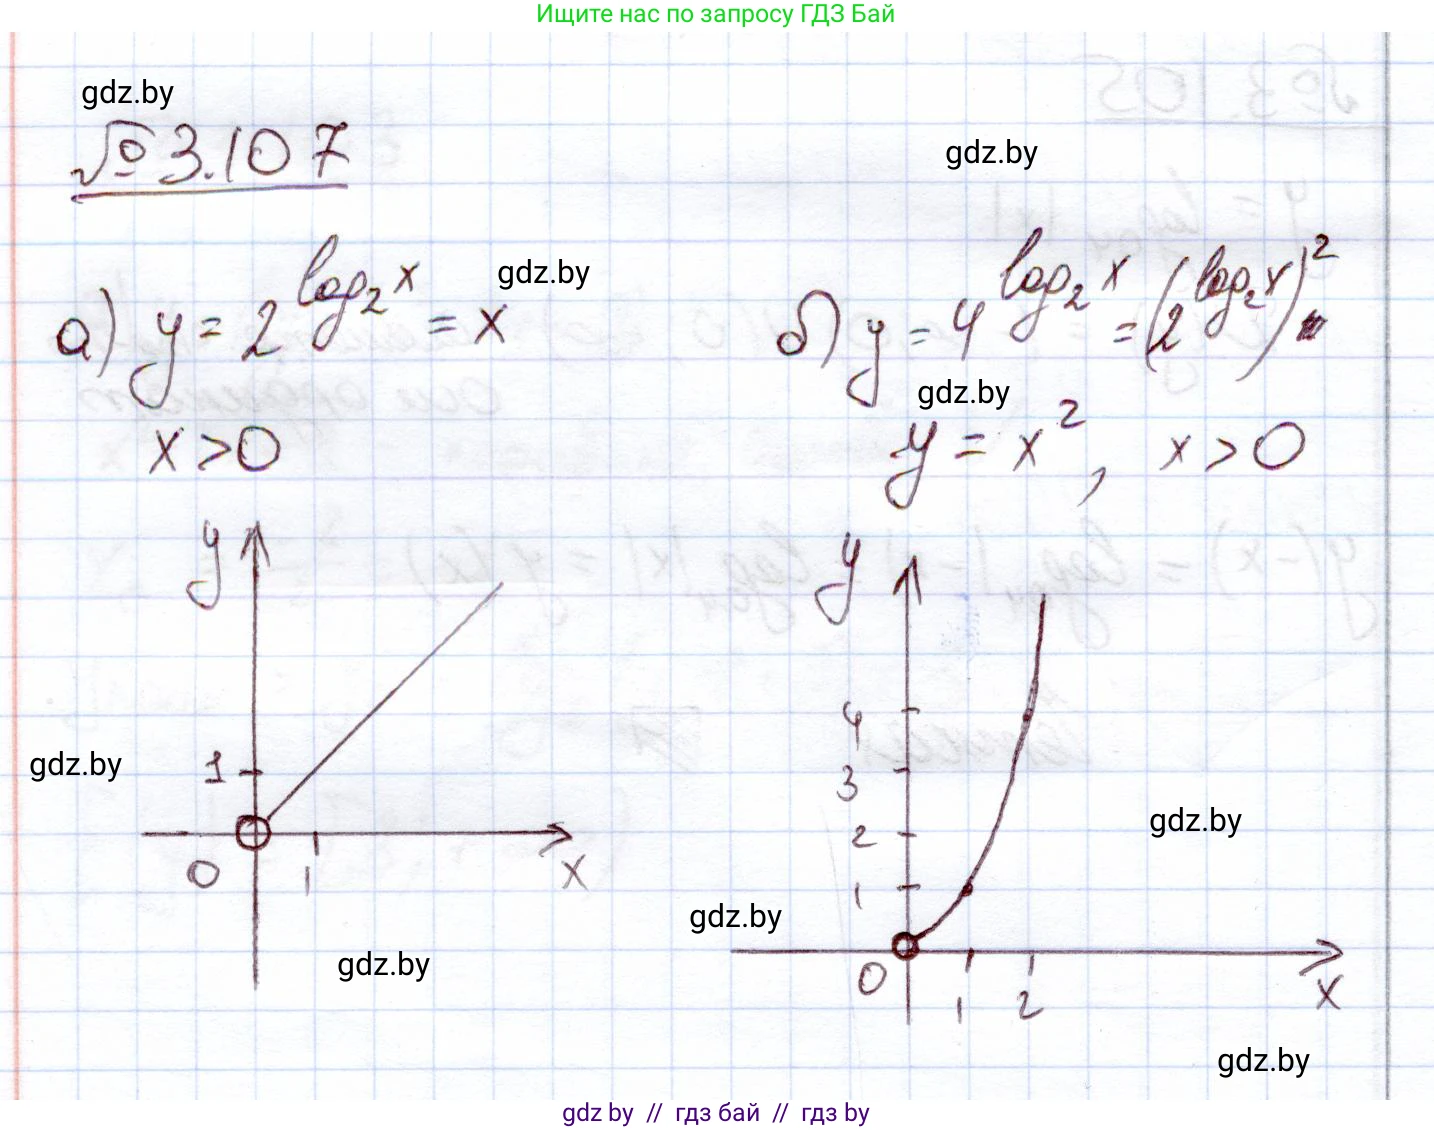 Ищите нас по запросу ГДЗ Бай
gdz.by
№ 3.107
gdz.by
а) y = 2^{log_2 x} = x
gdz.by
x > 0
б) y = 4^{log_2 x} = (2^{log_2 x})^2
gdz.by
y = x^2, x > 0
y
1
0
1
x
gdz.by
gdz.by
y
4
3
2
1
0
1
2
x
gdz.by
gdz.by
gdz.by
gdz by // гдз бай // гдз by